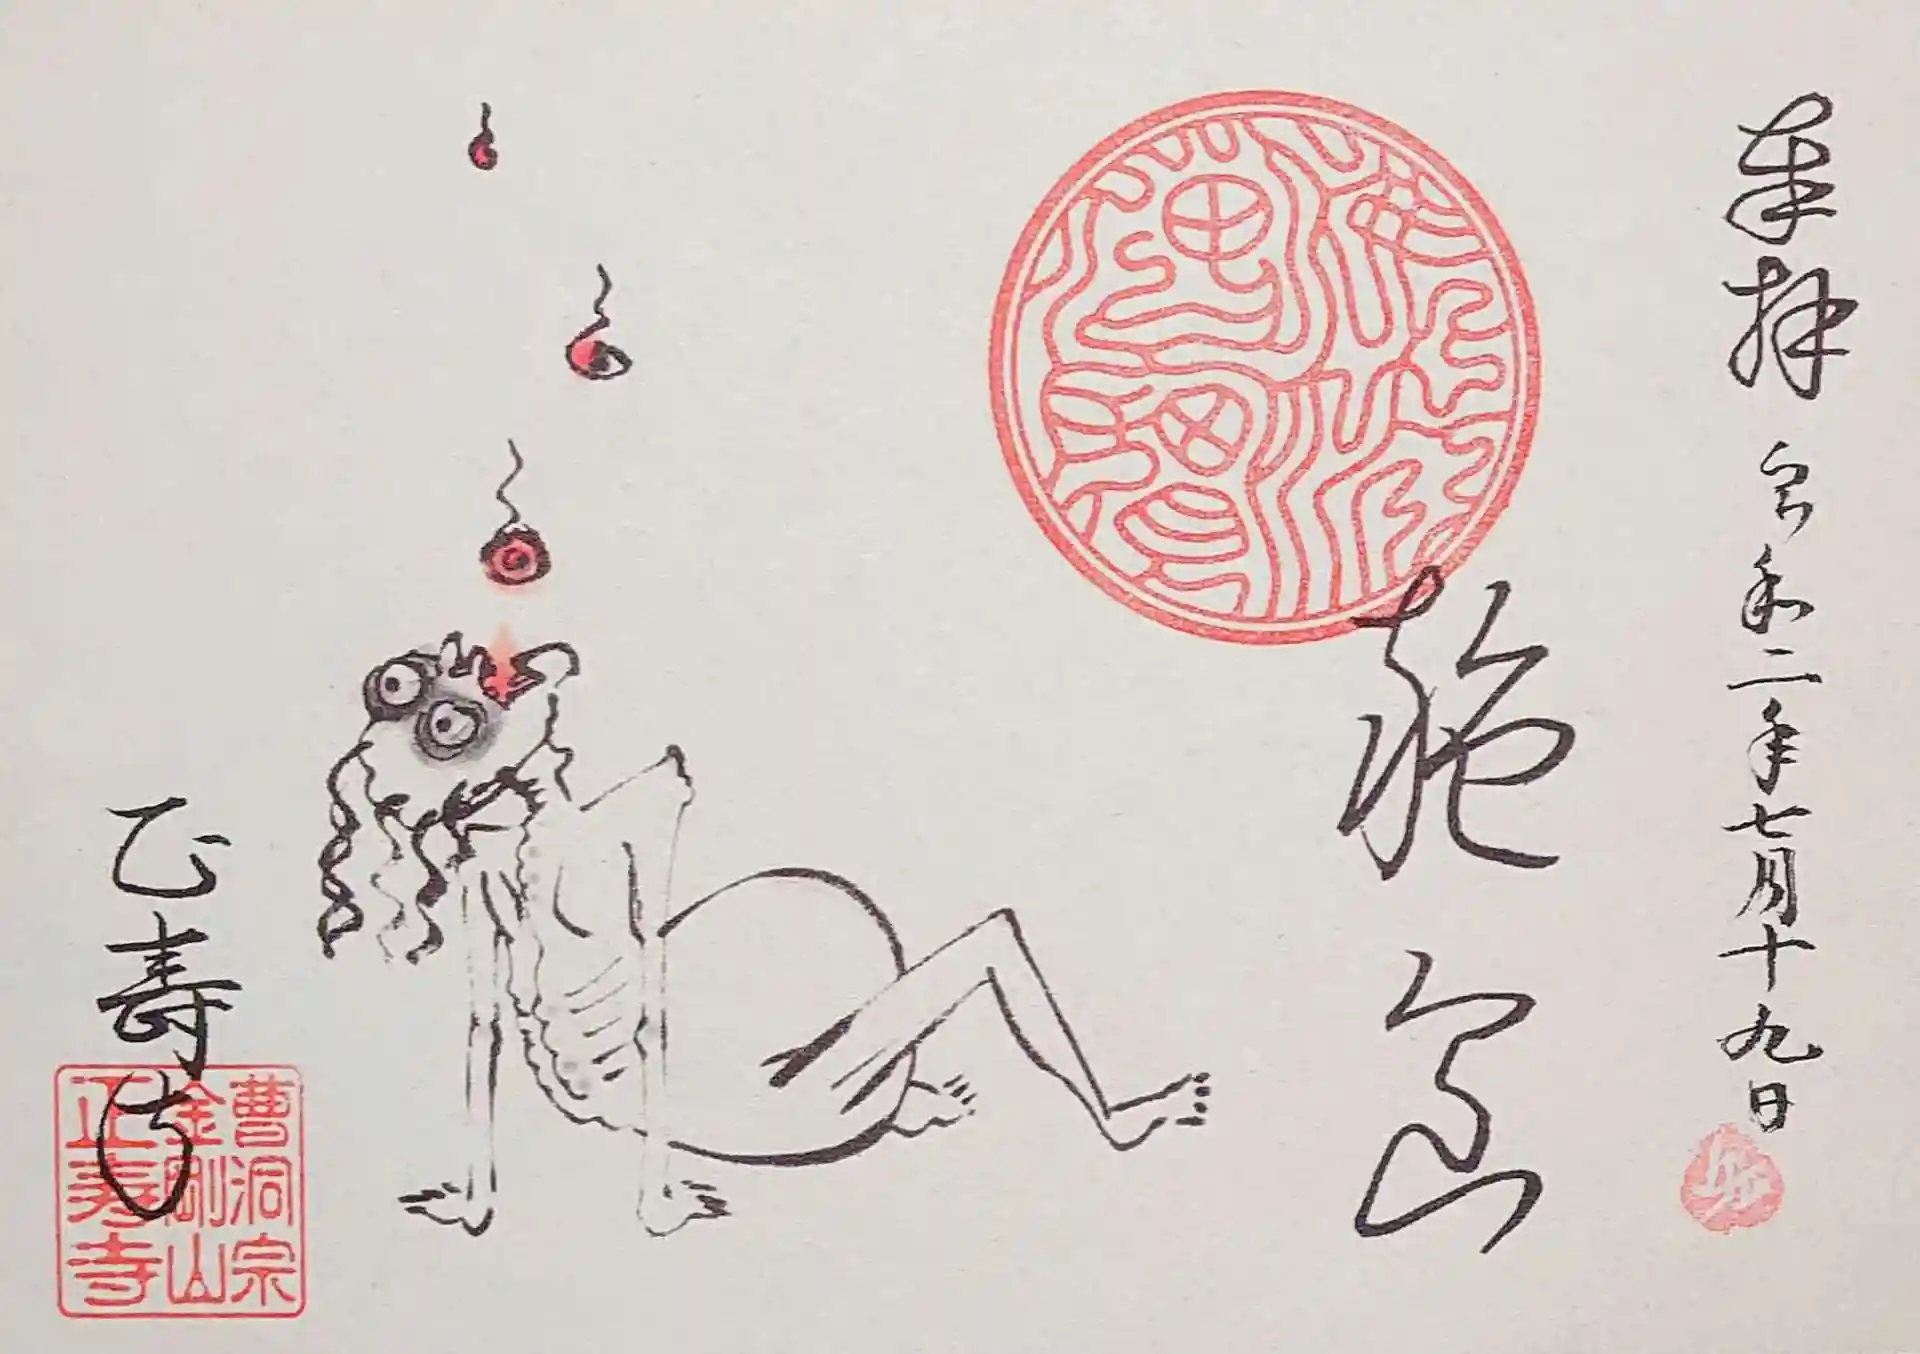 奉拝
令和二年七月十九日
施食
正壽寺
曹洞宗
金剛山
正寿寺